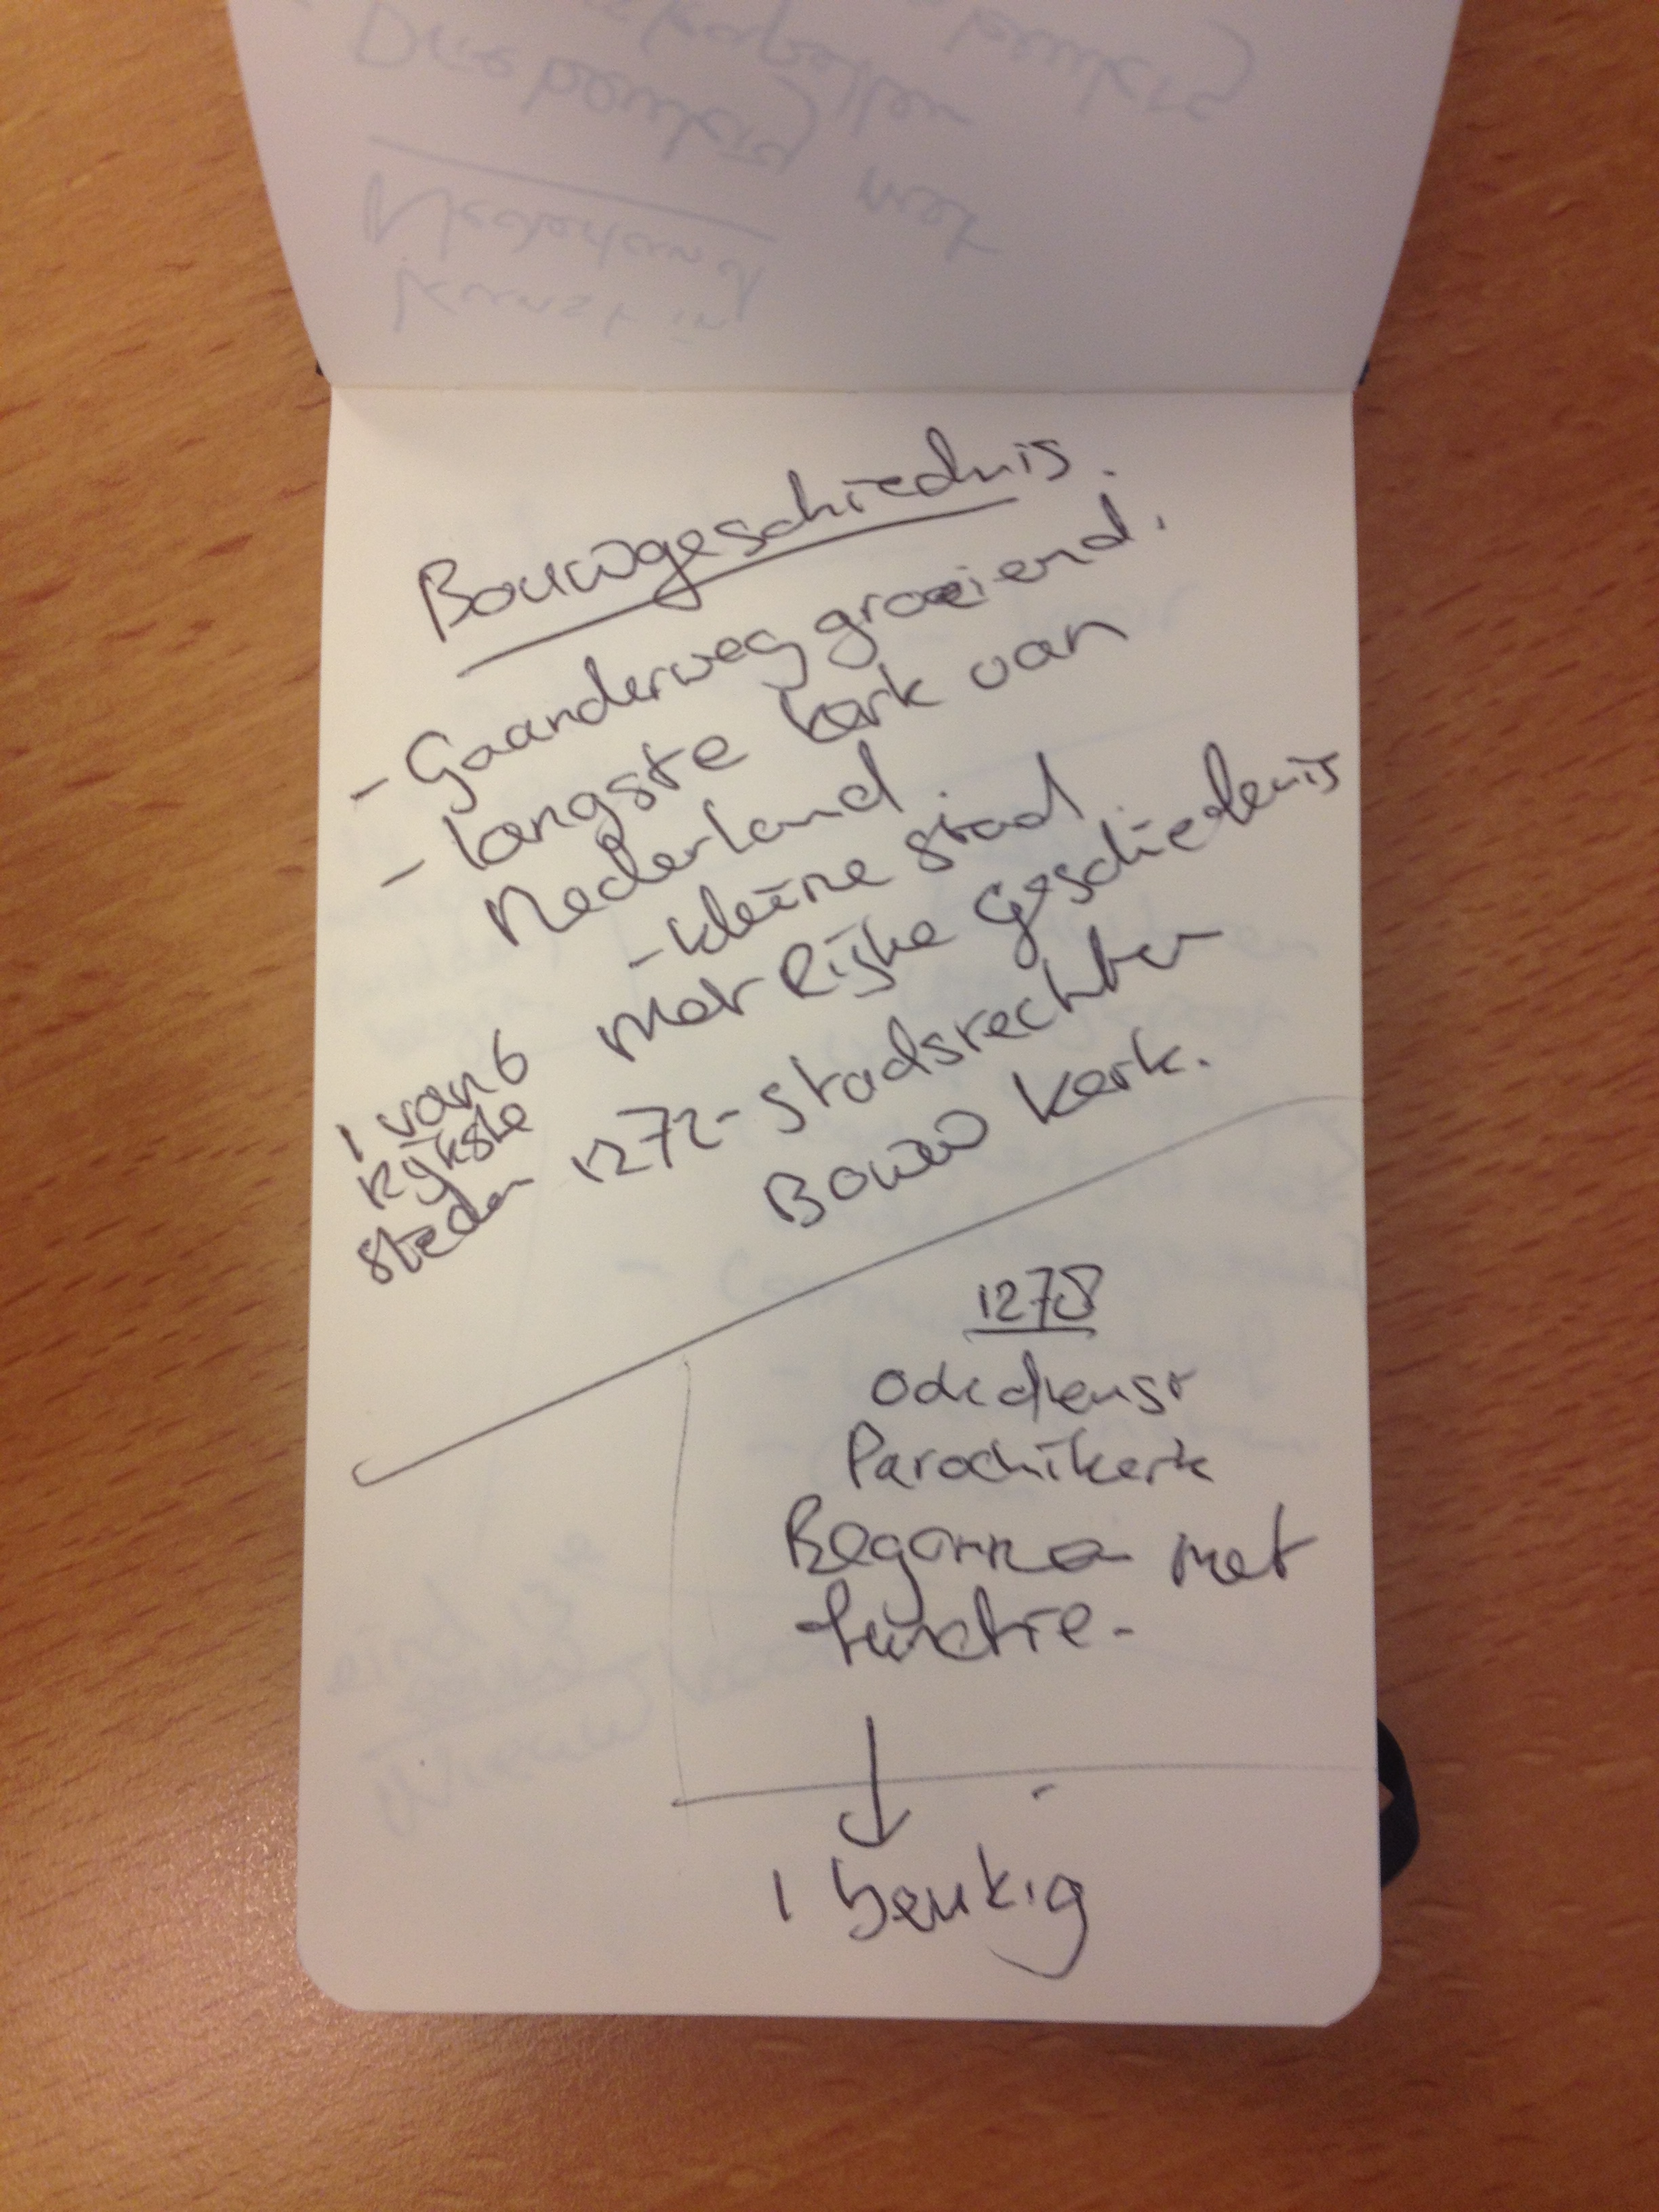 Bouwgeschiednis.
- Gaanderweg groeiend.
- langste kerk van
Nederland.
- kleine stad
met Rijke geschiedenis
1 van 6
rijkste
steden
1272 - stadsrechten
Bouw kerk.
1278
Parochikerk
Begonnen met
functie.
1 beukig